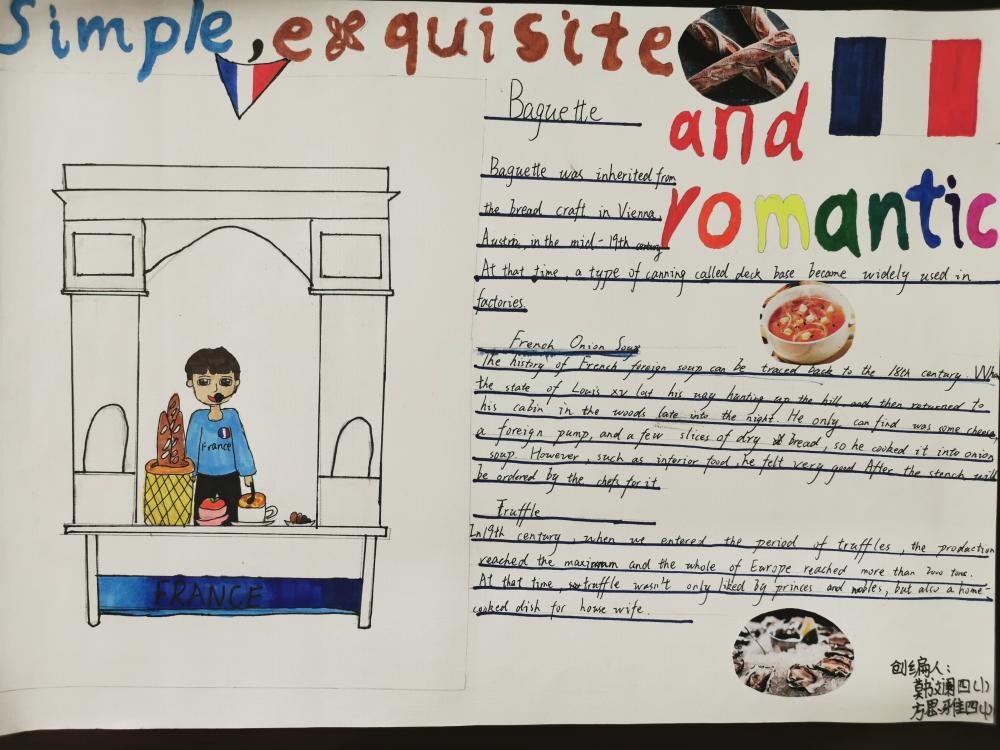 Simple, exquisite
and
romantic
Baguette
Baguette was inherited from
the bread craft in Vienna,
Austria, in the mid-19th century
At that time, a type of canning called deck base became widely used in
factories.
French Onion Soup
The history of French foreign soup can be traced back to the 18th century. When
the state of Louis xv lost his way hunting up the hill and then returned to
his cabin in the woods late into the night. He only can find was some cheese,
a foreign pump, and a few slices of dry bread, so he cooked it into onion
soup. However, such as interior food, he felt very good After the stench will
be ordered by the chefs for it
Truffle
In 19th century, when we entered the period of truffles, the production
reached the maximum and the whole of Europe reached more than 2000 tons.
At that time, truffle wasn't only liked by princes and nobles, but also a home-
cooked dish for house wife.
France
FRANCE
创编人:
文澜四(1)
方思雅四(1)